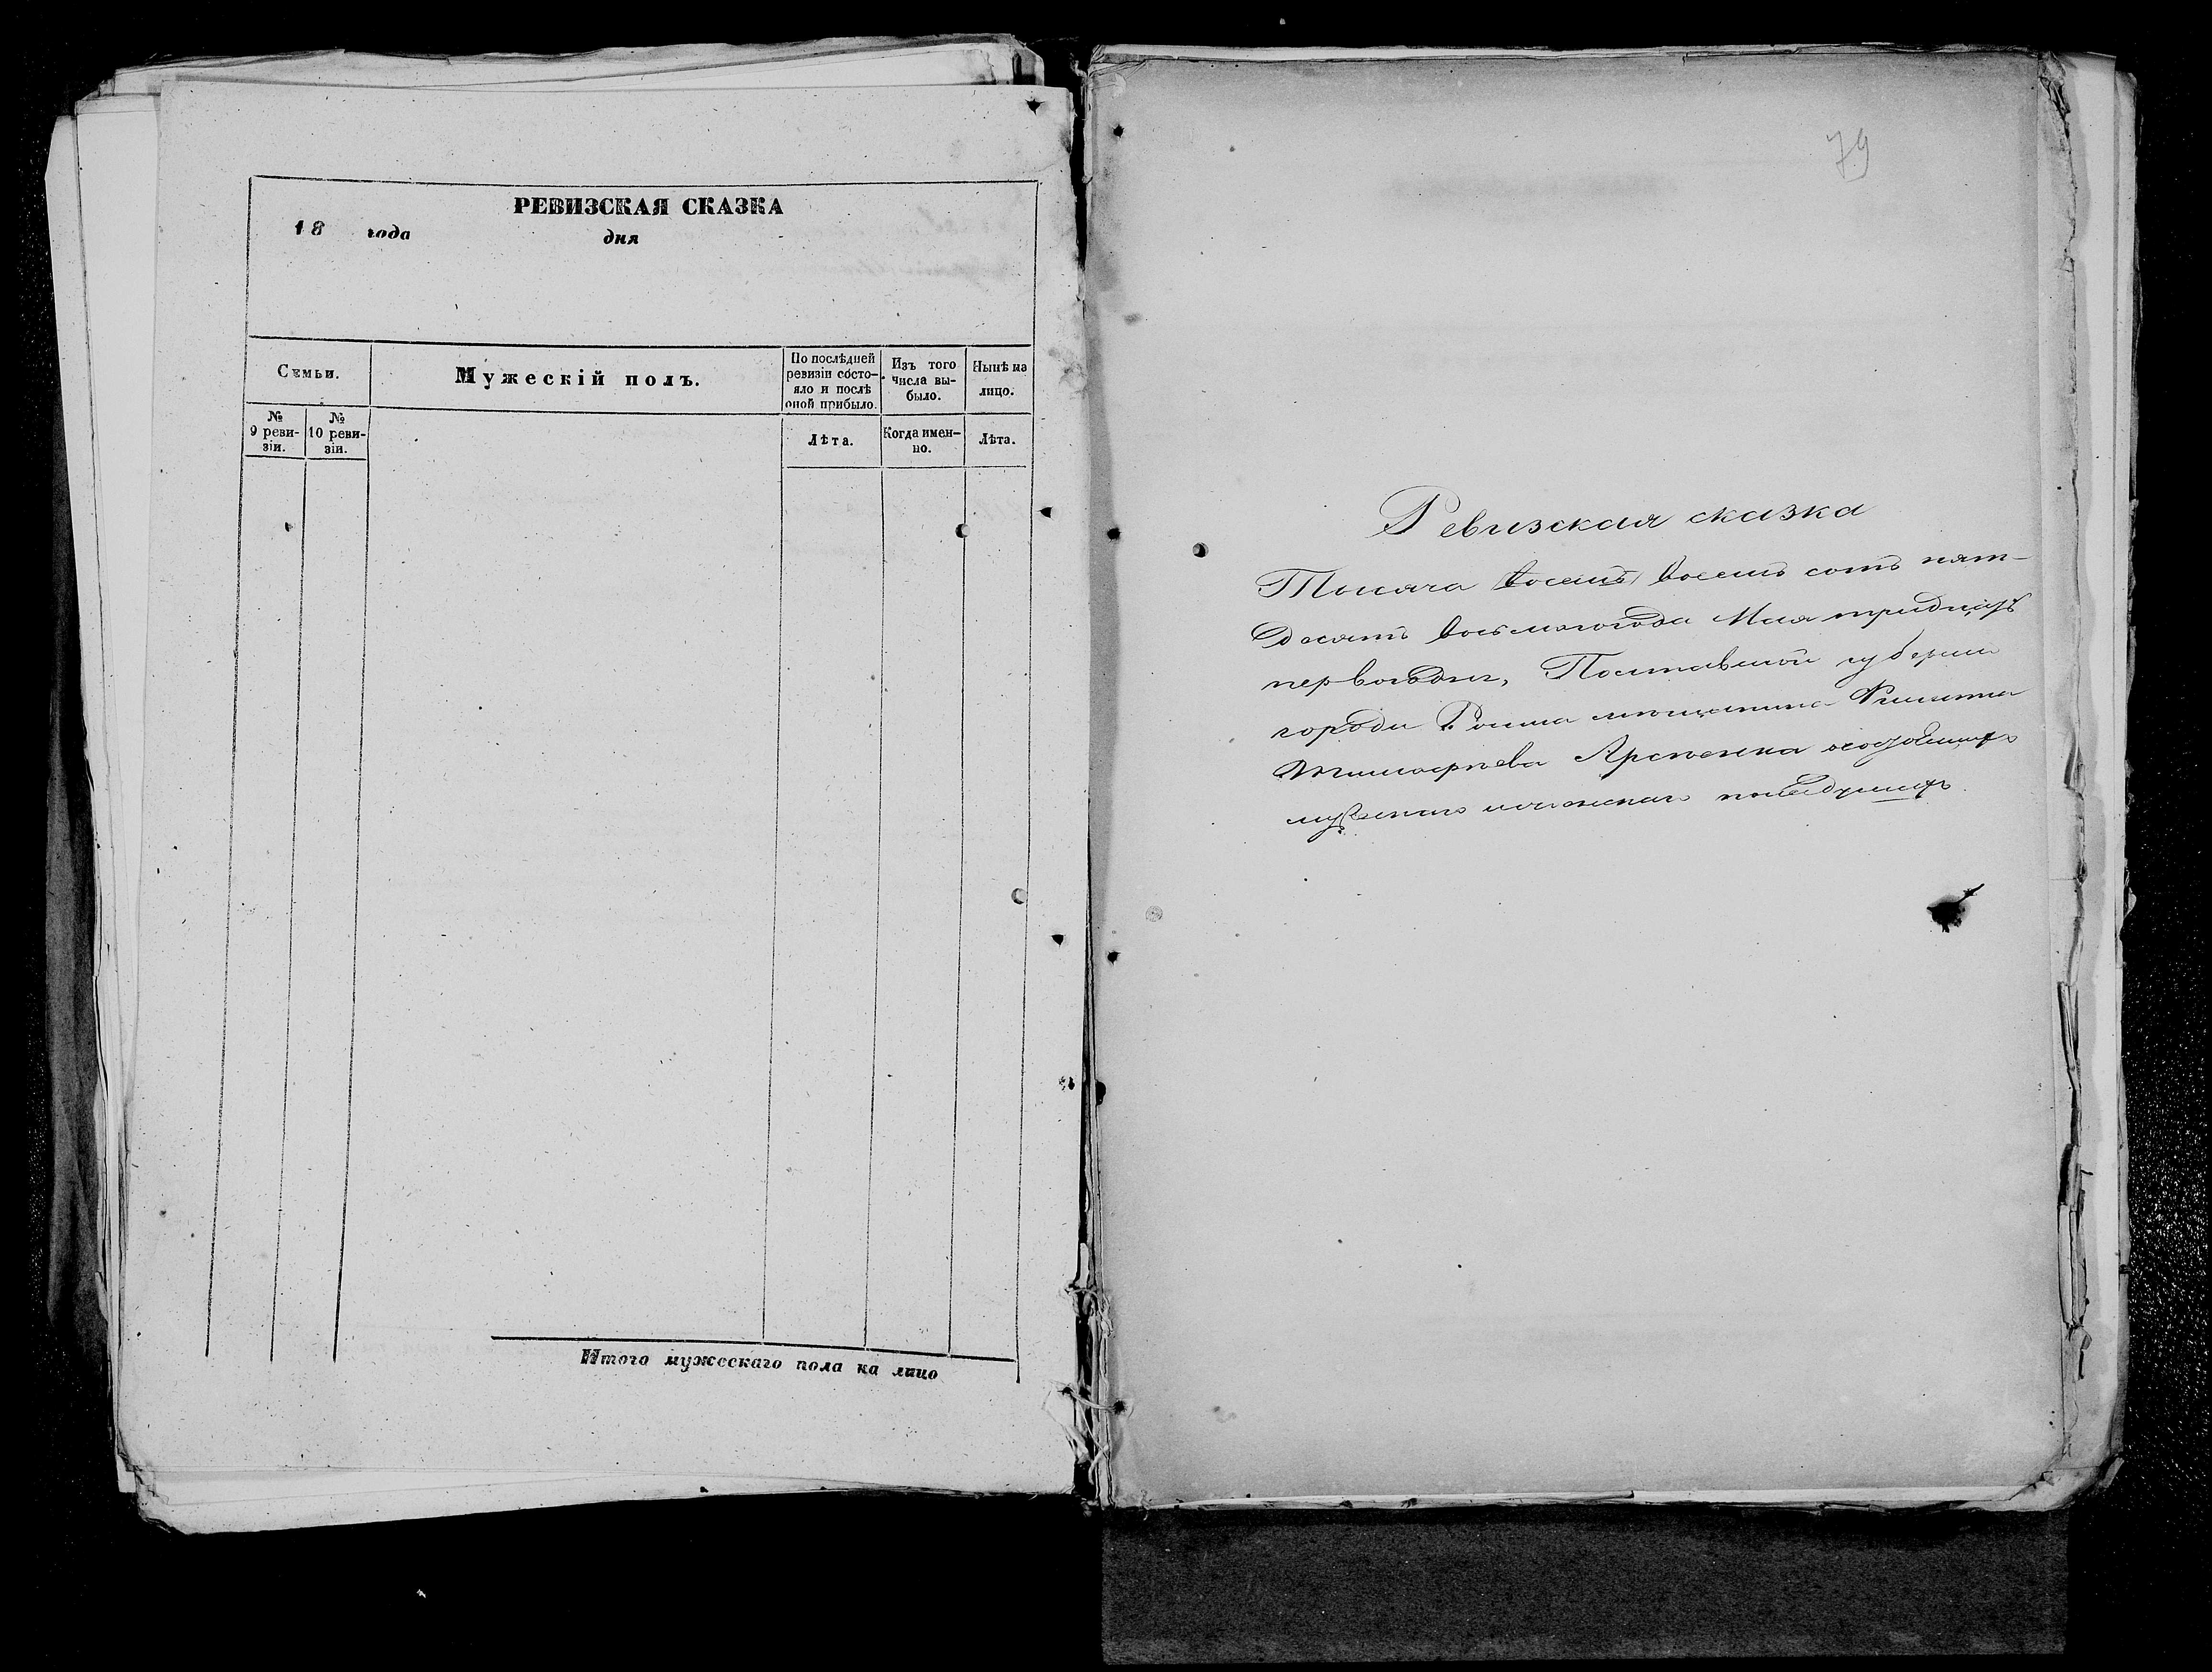 РЕВИЗСКАЯ СКАЗКА
18 года дня
Семьи.
Мужескій полъ.
По послѣдней ревизіи состо-
яло и послѣ
оной прибыло.
Изъ того
числа вы-
было.
Нынѣ на
лицо.
№
9 реви-
зіи.
№
10 реви-
зіи.
Лѣта.
Когда имен-
но.
Лѣта.
Итого мужескаго пола на лицо
79
Ревизская сказка
Тысяча восемь восемь сотъ пят-
десятъ восьмагогода Мая тридцать
перваго дня, Полтавской губерніи
города Ромна мещанина
Арсюенка
мужескаго